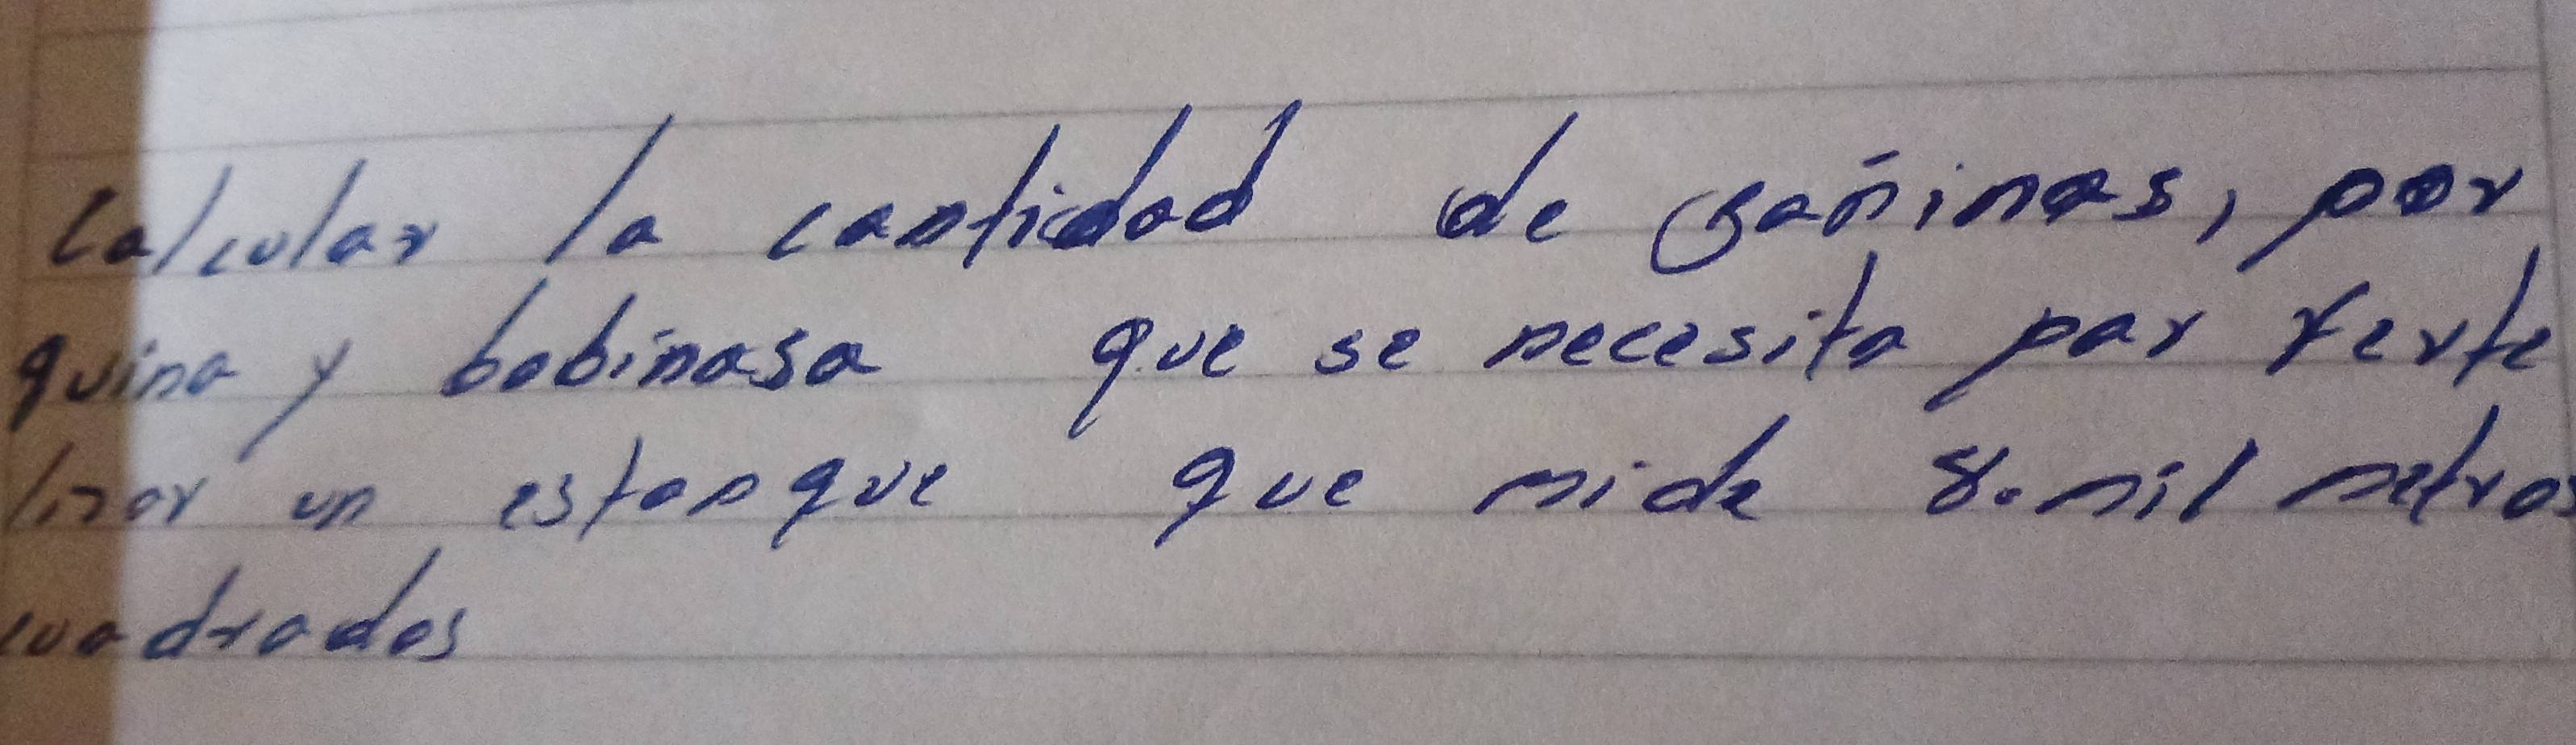 Calcular la cantidad de Gañinas, por
quina y bobinasa que se necesita par ferte
lizar un estanque que mide 8.mil metros
cuadrados